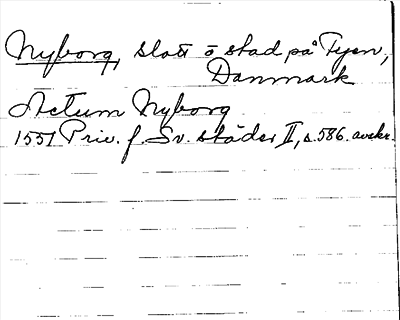 Nyborg, slott o stad på Fyen,
Danmark
Actum Nyborg
1557 Priv. f. Sv. städer II, s. 586. avskr.